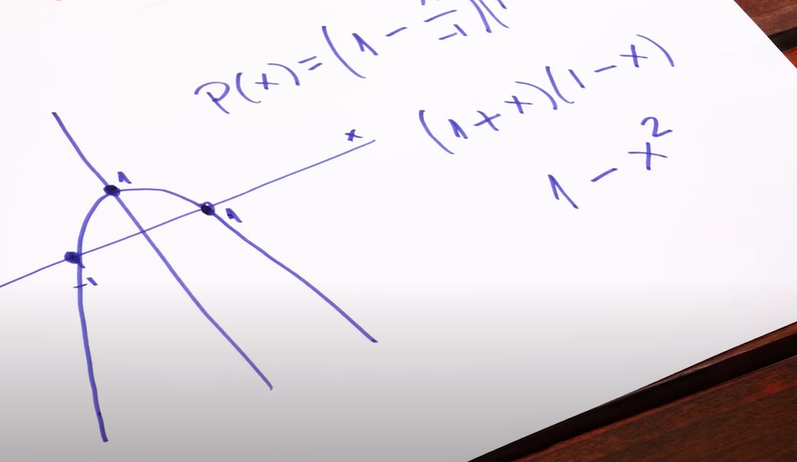 P(x)=(1-
-1
(1+x)(1-x)
1-x²
x
1
1
-1